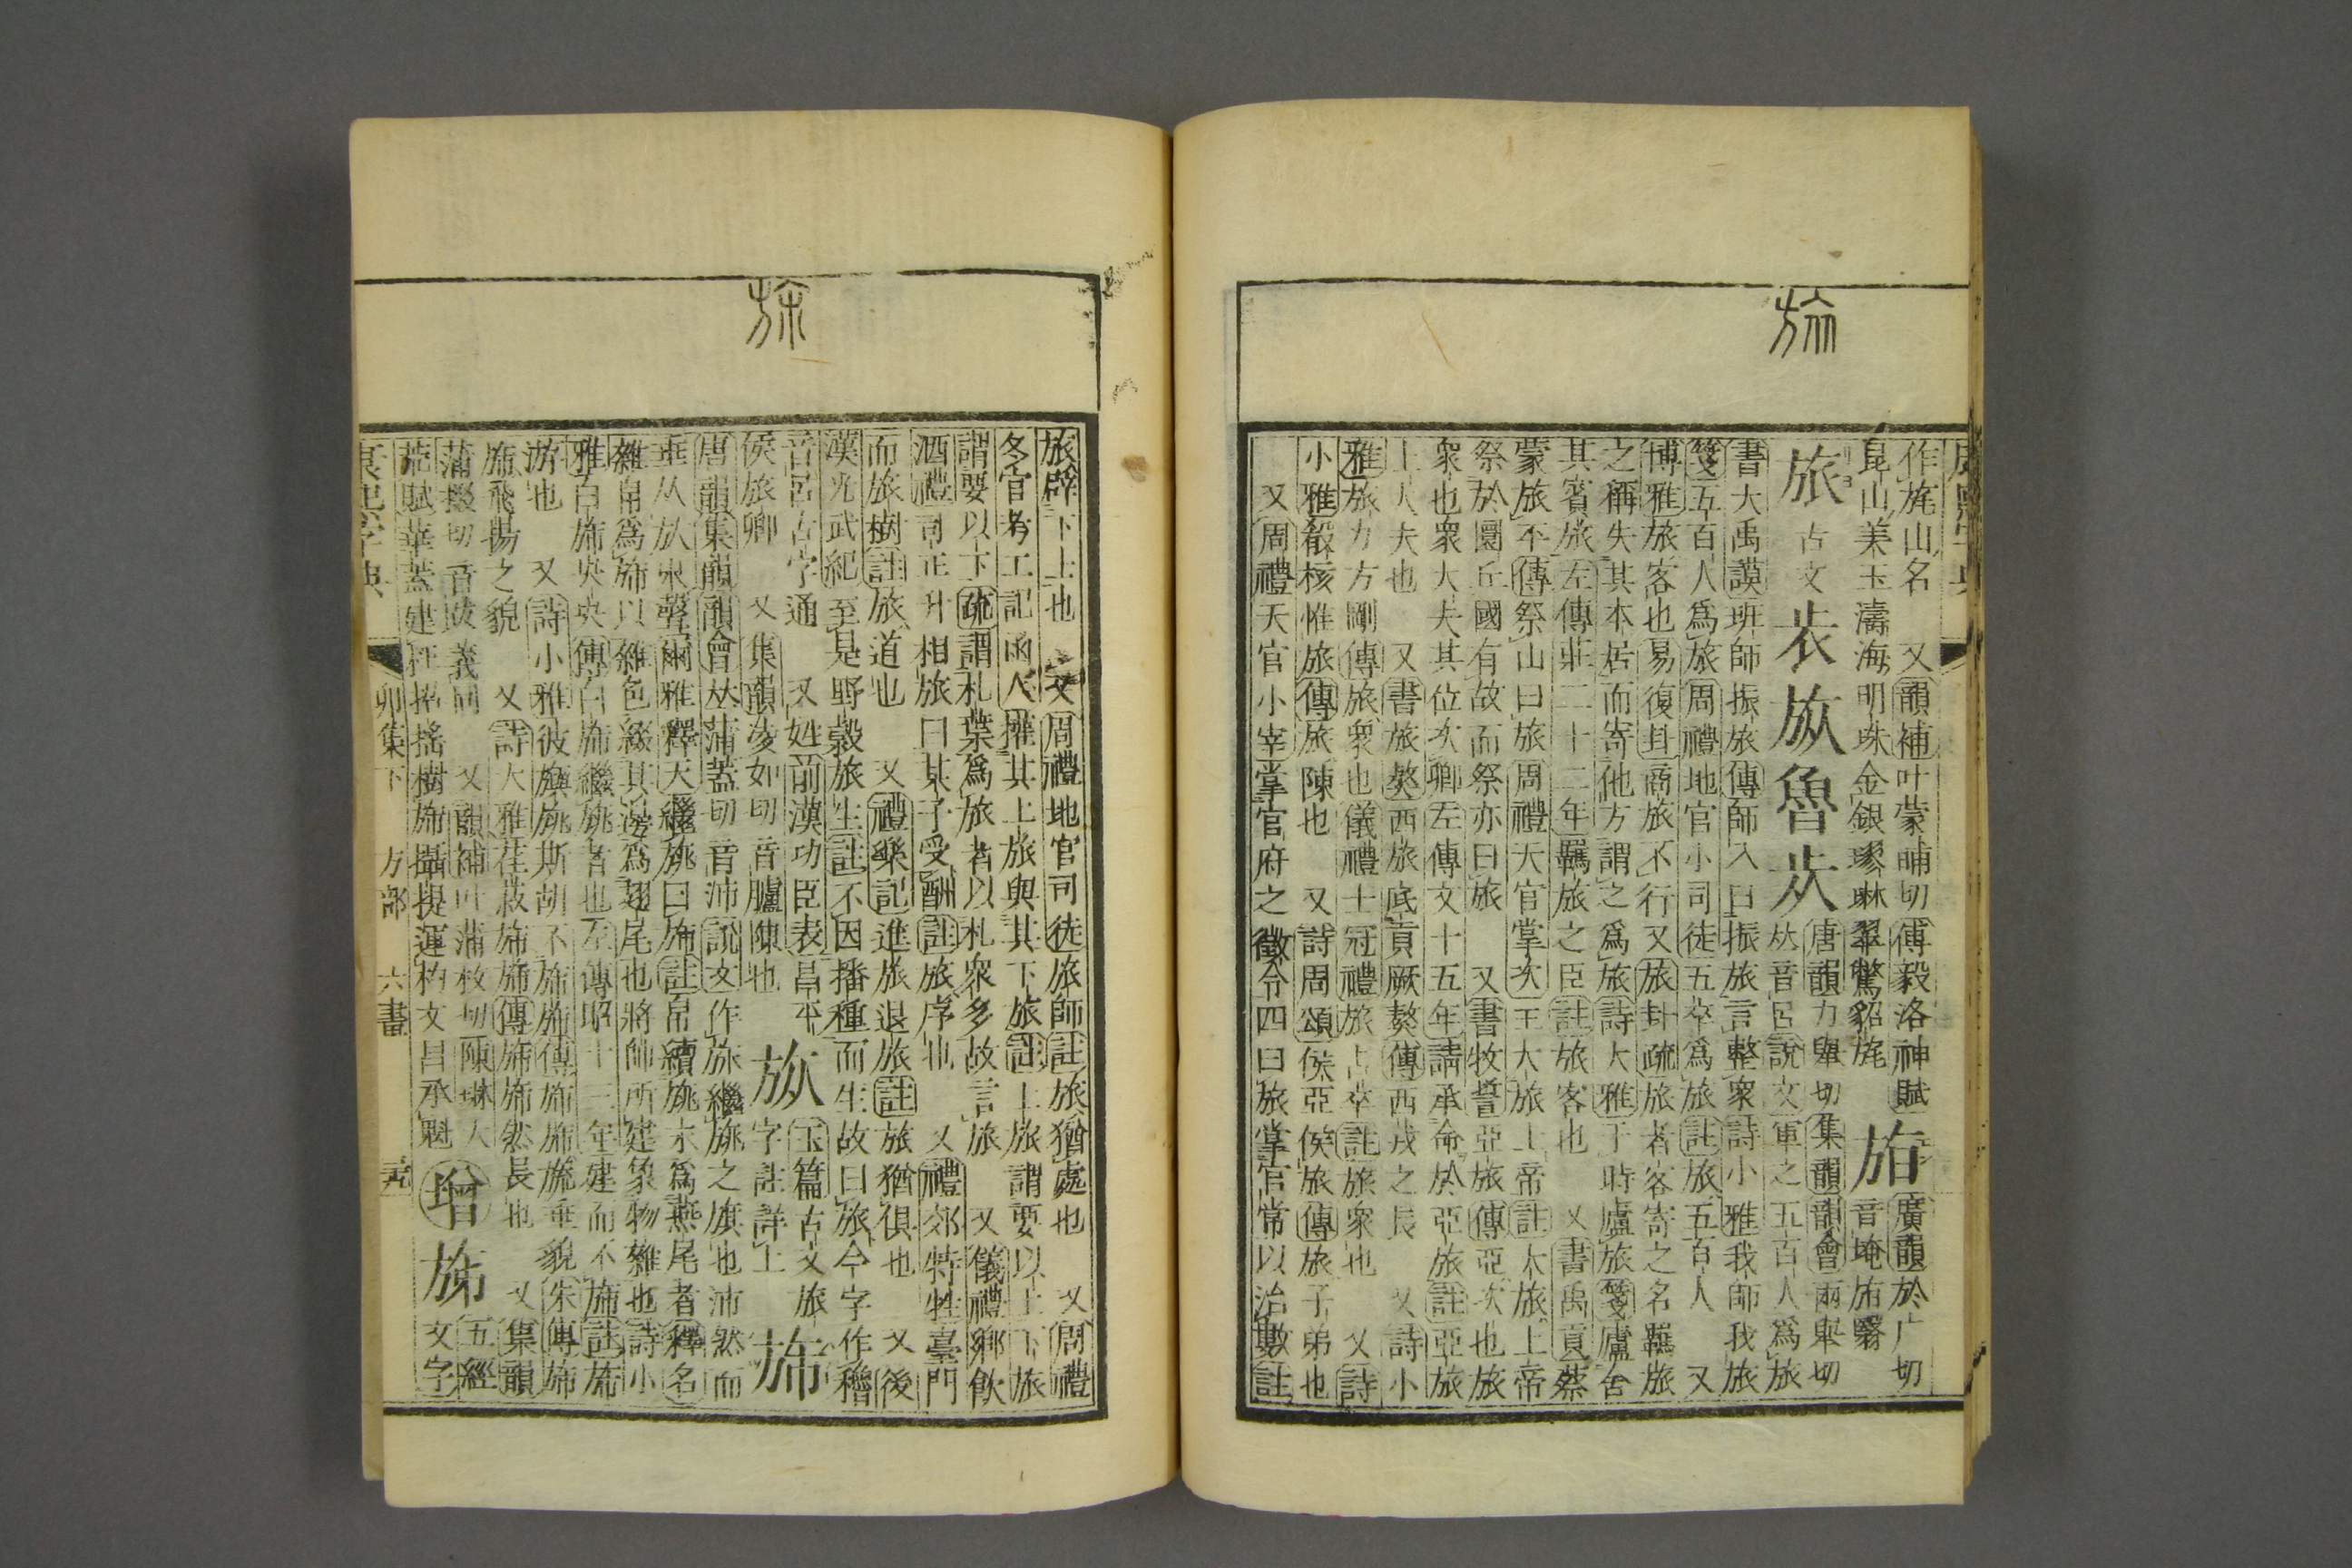 作旄山名　又韻補叶蒙晡切傅毅洛神賦
昆山美玉濤海明珠金銀璆琳翠鷩貂旄
廣韻於广切
音埯
旅 古文
唐韻力舉切集韻韻會兩舉切
𠀤音呂說文軍之五百人爲旅
書大禹謨班師振旅傳師入曰振旅言整衆詩小雅我師我旅
箋五百人爲旅周禮地官小司徒五卒爲旅註旅五百人　又
博雅旅客也易復卦商旅不行又旅卦疏旅者客寄之名羈旅
之稱失其本居而寄他方謂之爲旅詩大雅于時廬旅箋廬舍
其賓旅左傳莊二十二年羈旅之臣註旅客也　又書禹貢蔡
蒙旅平傳祭山曰旅周禮天官掌次王大旅上帝註大旅上帝
祭於圜丘國有故而祭亦曰旅　又書牧誓亞旅傳亞次也旅
衆也衆大夫其位次卿左傳文十五年請承命於亞旅註亞旅
上大夫也　又書旅獒西旅底貢厥獒傳西戎之長　又詩小
雅旅力方剛傳旅衆也儀禮士冠禮旅占卒註旅衆也　又詩
小雅殽核惟旅傳旅陳也　又詩周頌侯亞侯旅傳旅子弟也
又周禮天官小宰掌官府之徵令四曰旅掌官常以治數註
旅辟下士也　又周禮地官司徒旅師註旅猶處也　又周禮
冬官考工記函人權其上旅與其下旅註上旅謂要以上下旅
謂要以下疏謂札葉爲旅者以札衆多故言旅　又儀禮鄉飲
酒禮司正升相旅曰某子受酬註旅序也　又禮郊特牲臺門
而旅樹註旅道也　又禮樂記進旅退旅註旅猶俱也　又後
漢光武紀至是野穀旅生註不因播種而生故曰旅今字作穭
音呂古字通　又姓前漢功臣表昌平
侯旅卿　又集韻凌如切音臚陳也
㫃 玉篇古文旅
字註詳上
旆
唐韻集韻韻會𠀤蒲蓋切音沛說文作旆繼旐之旗也沛然而
垂从㫃宋聲爾雅釋天繼旐曰旆註帛續旐末爲燕尾者釋名
雜帛爲旆以雜色綴其邊爲翅尾也將帥所建象物雜也詩小
雅白旆央央傳白旆繼旐者也左傳昭十三年建而不旆註旆
游也　又詩小雅彼旟旐斯胡不旆旆傳旆旆旒垂貌朱傳旆
旆飛揚之貌　又詩大雅荏菽旆旆傳旆旆然長也　又集韻
蒲撥切音茇義同　又韻補叶蒲枚切陳琳大
荒賦華蓋建杠招搖樹旆攝提運柄文昌承魁
增
五經
文字
康熙字典　卯集下　方部　六畫